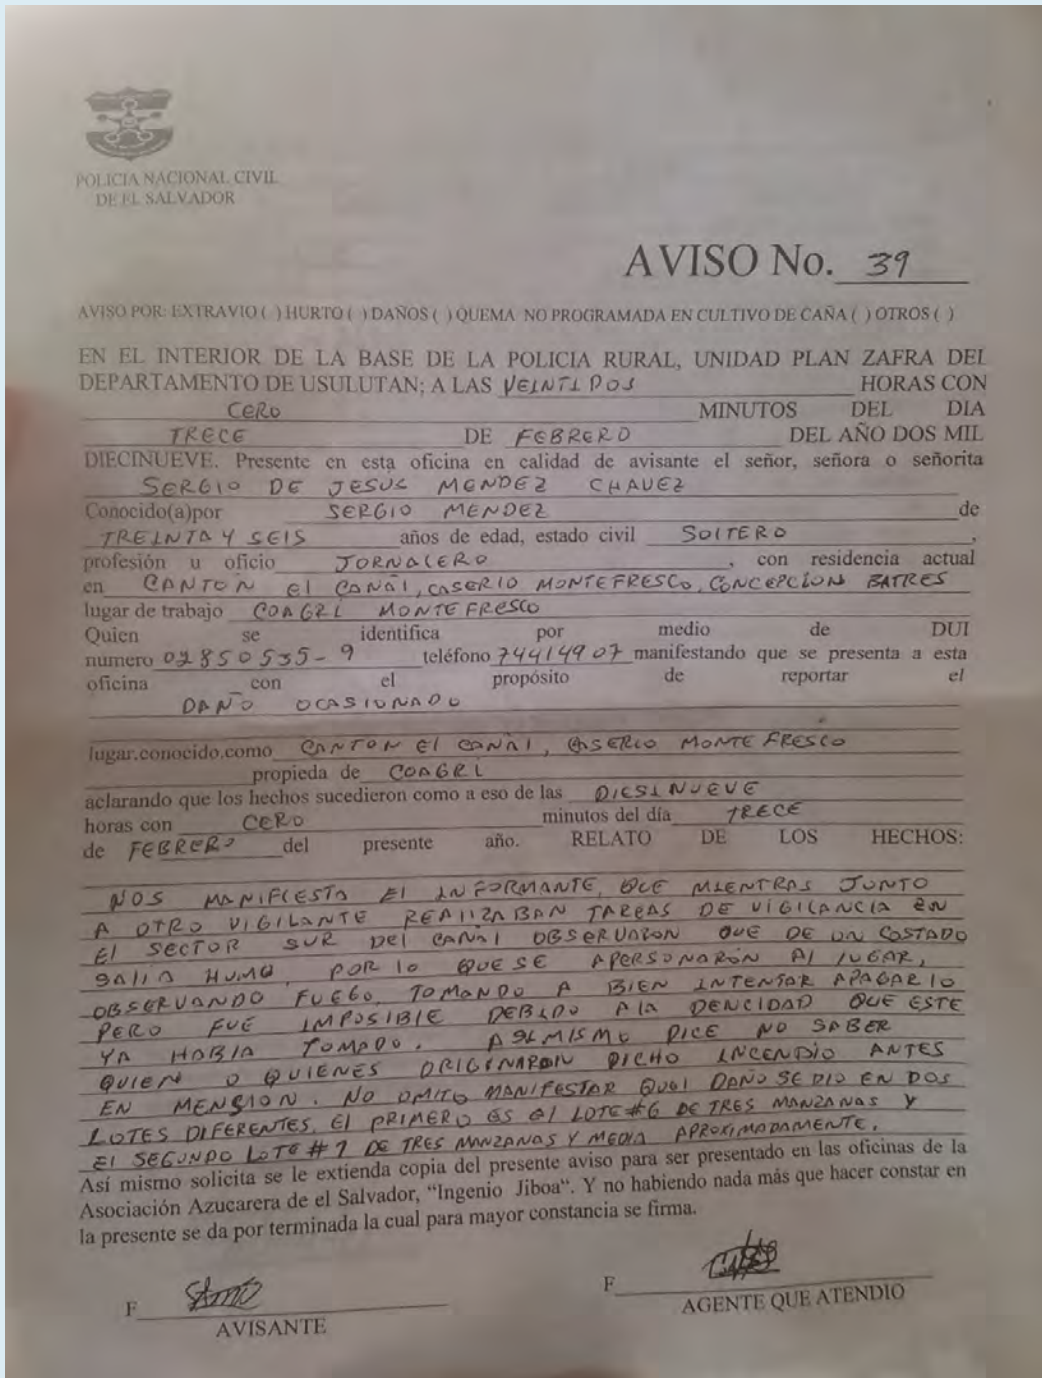 POLICIA NACIONAL CIVIL
DE EL SALVADOR
AVISO No. 39
AVISO POR: EXTRAVIO ( ) HURTO ( ) DAÑOS ( ) QUEMA NO PROGRAMADA EN CULTIVO DE CAÑA ( ) OTROS ( )
EN EL INTERIOR DE LA BASE DE LA POLICIA RURAL, UNIDAD PLAN ZAFRA DEL
DEPARTAMENTO DE USULUTAN; A LAS VEINTIDOS HORAS CON
CERO MINUTOS DEL DIA
TRECE DE FEBRERO DEL AÑO DOS MIL
DIECINUEVE. Presente en esta oficina en calidad de avisante el señor, señora o señorita
SERGIO DE JESUS MENDEZ CHAVEZ
Conocido(a)por SERGIO MENDEZ de
TREINTA Y SEIS años de edad, estado civil SOLTERO,
profesión u oficio JORNALERO, con residencia actual
en CANTON El CANAl, CASERIO MONTEFRESCO, CONCEPCION BATRES
lugar de trabajo COAGRI MONTEFRESCO
Quien se identifica por medio de DUI
numero 02850535-9 teléfono 74414907 manifestando que se presenta a esta
oficina con el propósito de reportar el
DAÑO OCASIONADO
lugar.conocido.como CANTON El CANAl, CASERIO MONTE FRESCO
propieda de COAGRI
aclarando que los hechos sucedieron como a eso de las DIESINUEVE
horas con CERO minutos del día TRECE
de FEBRERO del presente año. RELATO DE LOS HECHOS:
NOS MANIFIESTA El INFORMANTE, QUE MIENTRAS JUNTO
A OTRO VIGILANTE REAlIZABAN TAREAS DE VIGILANCIA EN
El SECTOR SUR DEl CANAl OBSERVARON QUE DE UN COSTADO
SAlIA HUMO, POR lO QUE SE APERSONARON Al lUGAR,
OBSERVANDO FUEGO, TOMANDO A BIEN INTENTAR APAGARlO
PERO FUE IMPOSIBlE DEBIDO A lA DENCIDAD QUE ESTE
YA HABIA TOMADO. ASI MISMO DICE NO SABER
QUIEN O QUIENES ORIGINARON DICHO INCENDIO ANTES
EN MENSION. NO OMITO MANIFESTAR QUEl DAÑO SE DIO EN DOS
LOTES DIFERENTES, El PRIMERO ES El LOTE #6 DE TRES MANZANAS Y
El SEGUNDO LOTE #7 DE TRES MANZANAS Y MEDIA APROXIMADAMENTE.
Así mismo solicita se le extienda copia del presente aviso para ser presentado en las oficinas de la
Asociación Azucarera de el Salvador, “Ingenio Jiboa“. Y no habiendo nada más que hacer constar en
la presente se da por terminada la cual para mayor constancia se firma.
F
F
AVISANTE
AGENTE QUE ATENDIO